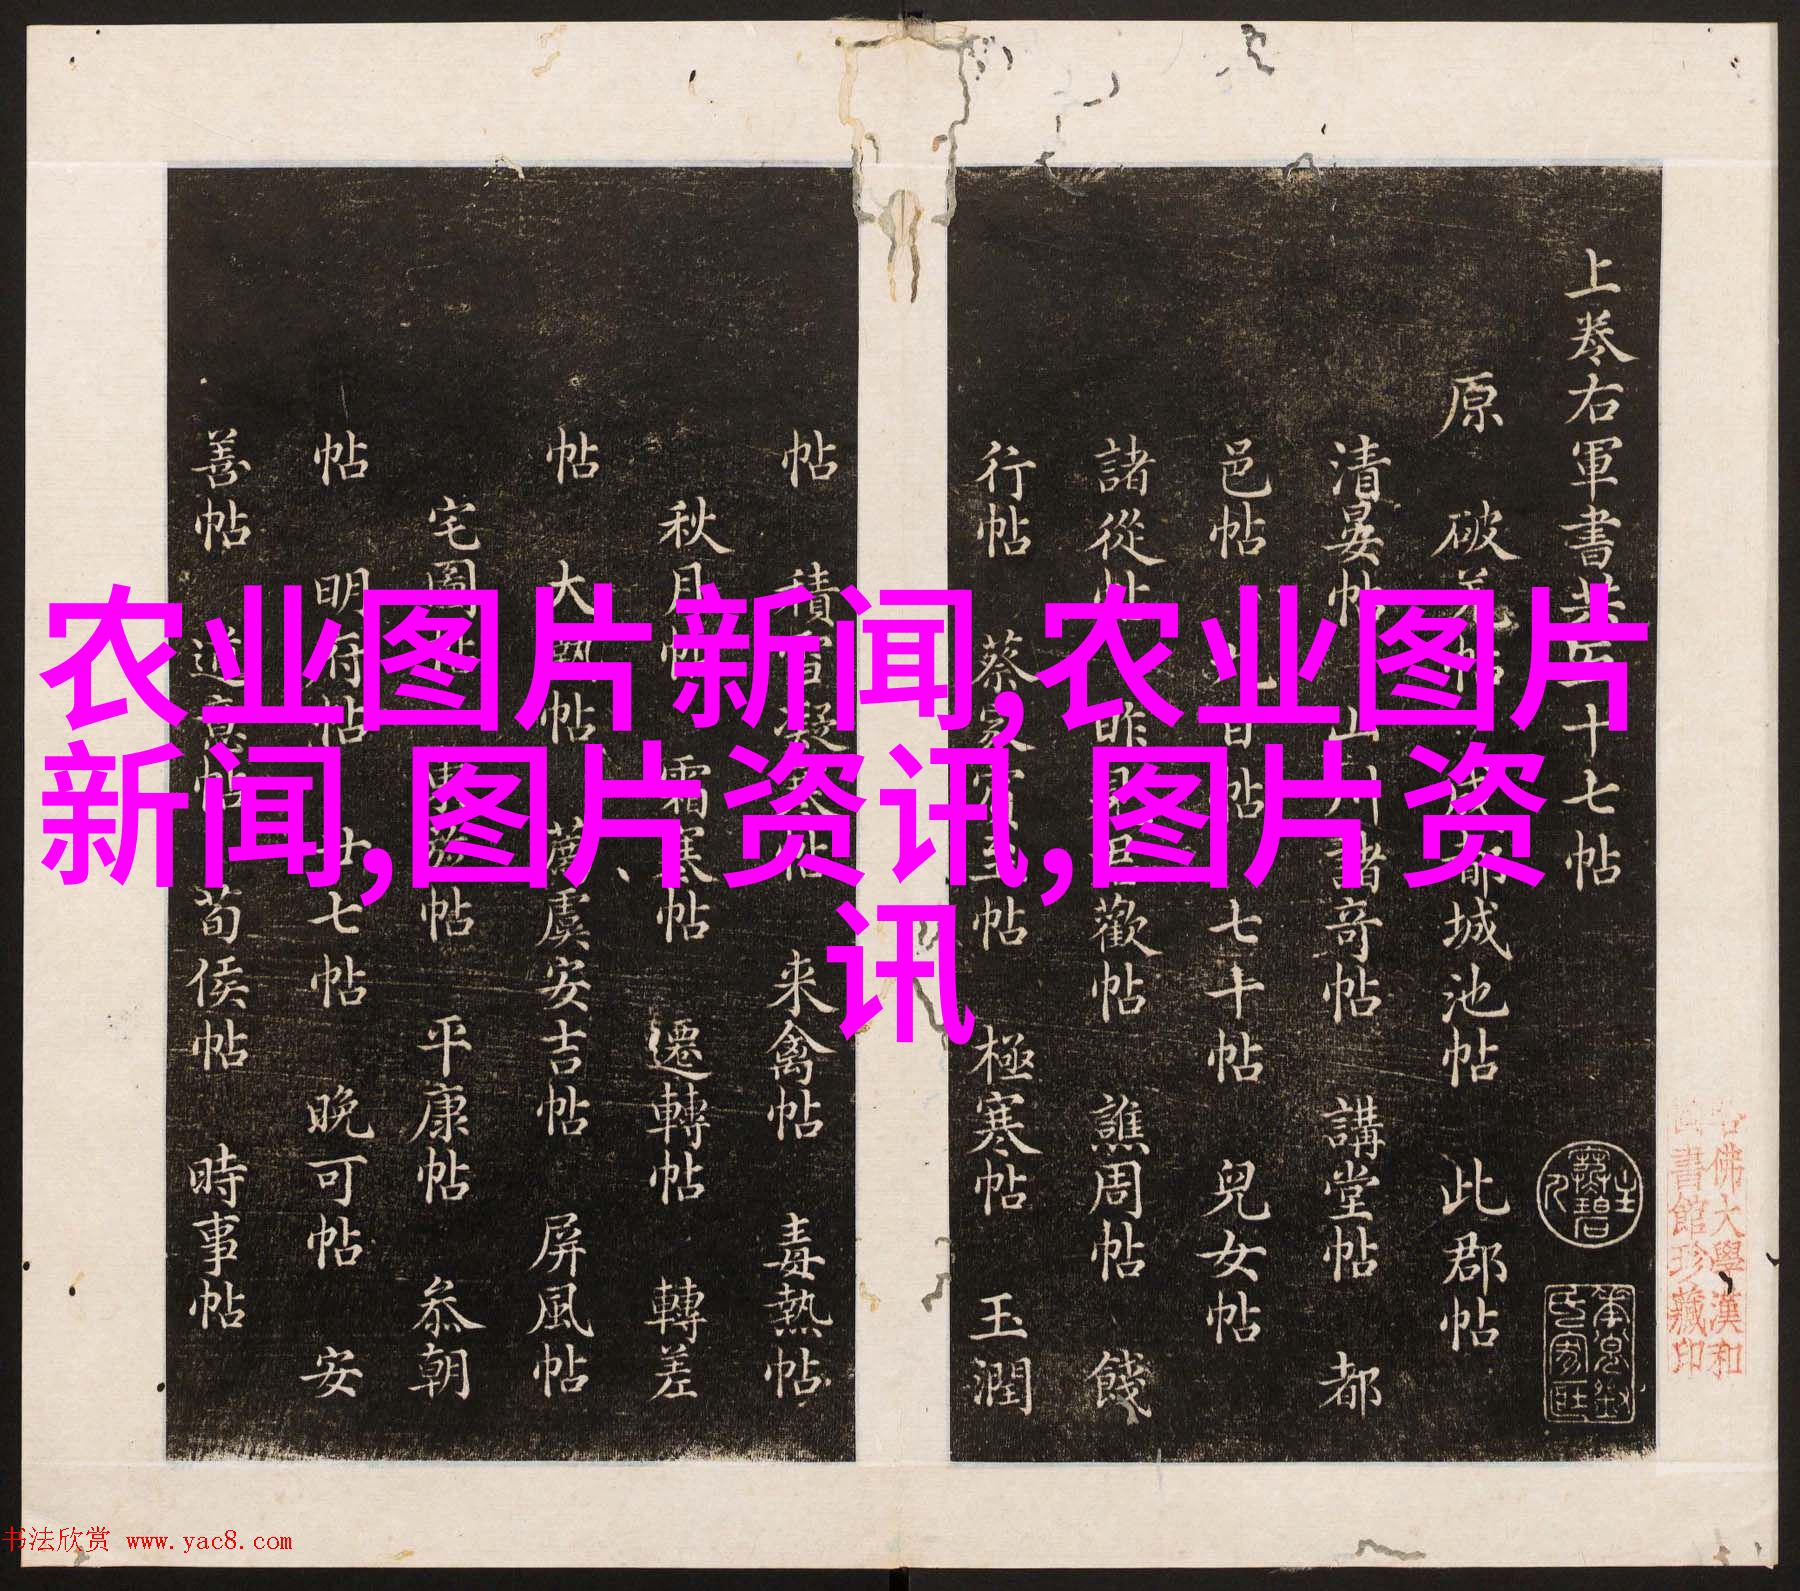 上卷右軍書共五十七帖
原 破羌帖 成都城池帖 此郡帖
清晏帖 山川諸奇帖 講堂帖 都
邑帖 九日帖 七十帖 兒女帖
諸從帖 昨見君歡帖 譙周帖 餞
行帖 蔡家賓至帖 極寒帖 玉潤
帖 積雪凝寒帖 来禽帖 毒熱帖
秋月帖 霜寒帖 遷轉帖 轉差
帖 大熱帖 虞安吉帖 屏風帖
宅圖帖 帖 平康帖 叅朝
帖 明府帖 廿七帖 晚可帖 安
善帖 适意帖 荀侯帖 時事帖
佛大學漢和
書館珍藏印
农业图片新闻,农业图片
新闻,图片资讯,图片资
讯
书法欣赏 www.yac8.com